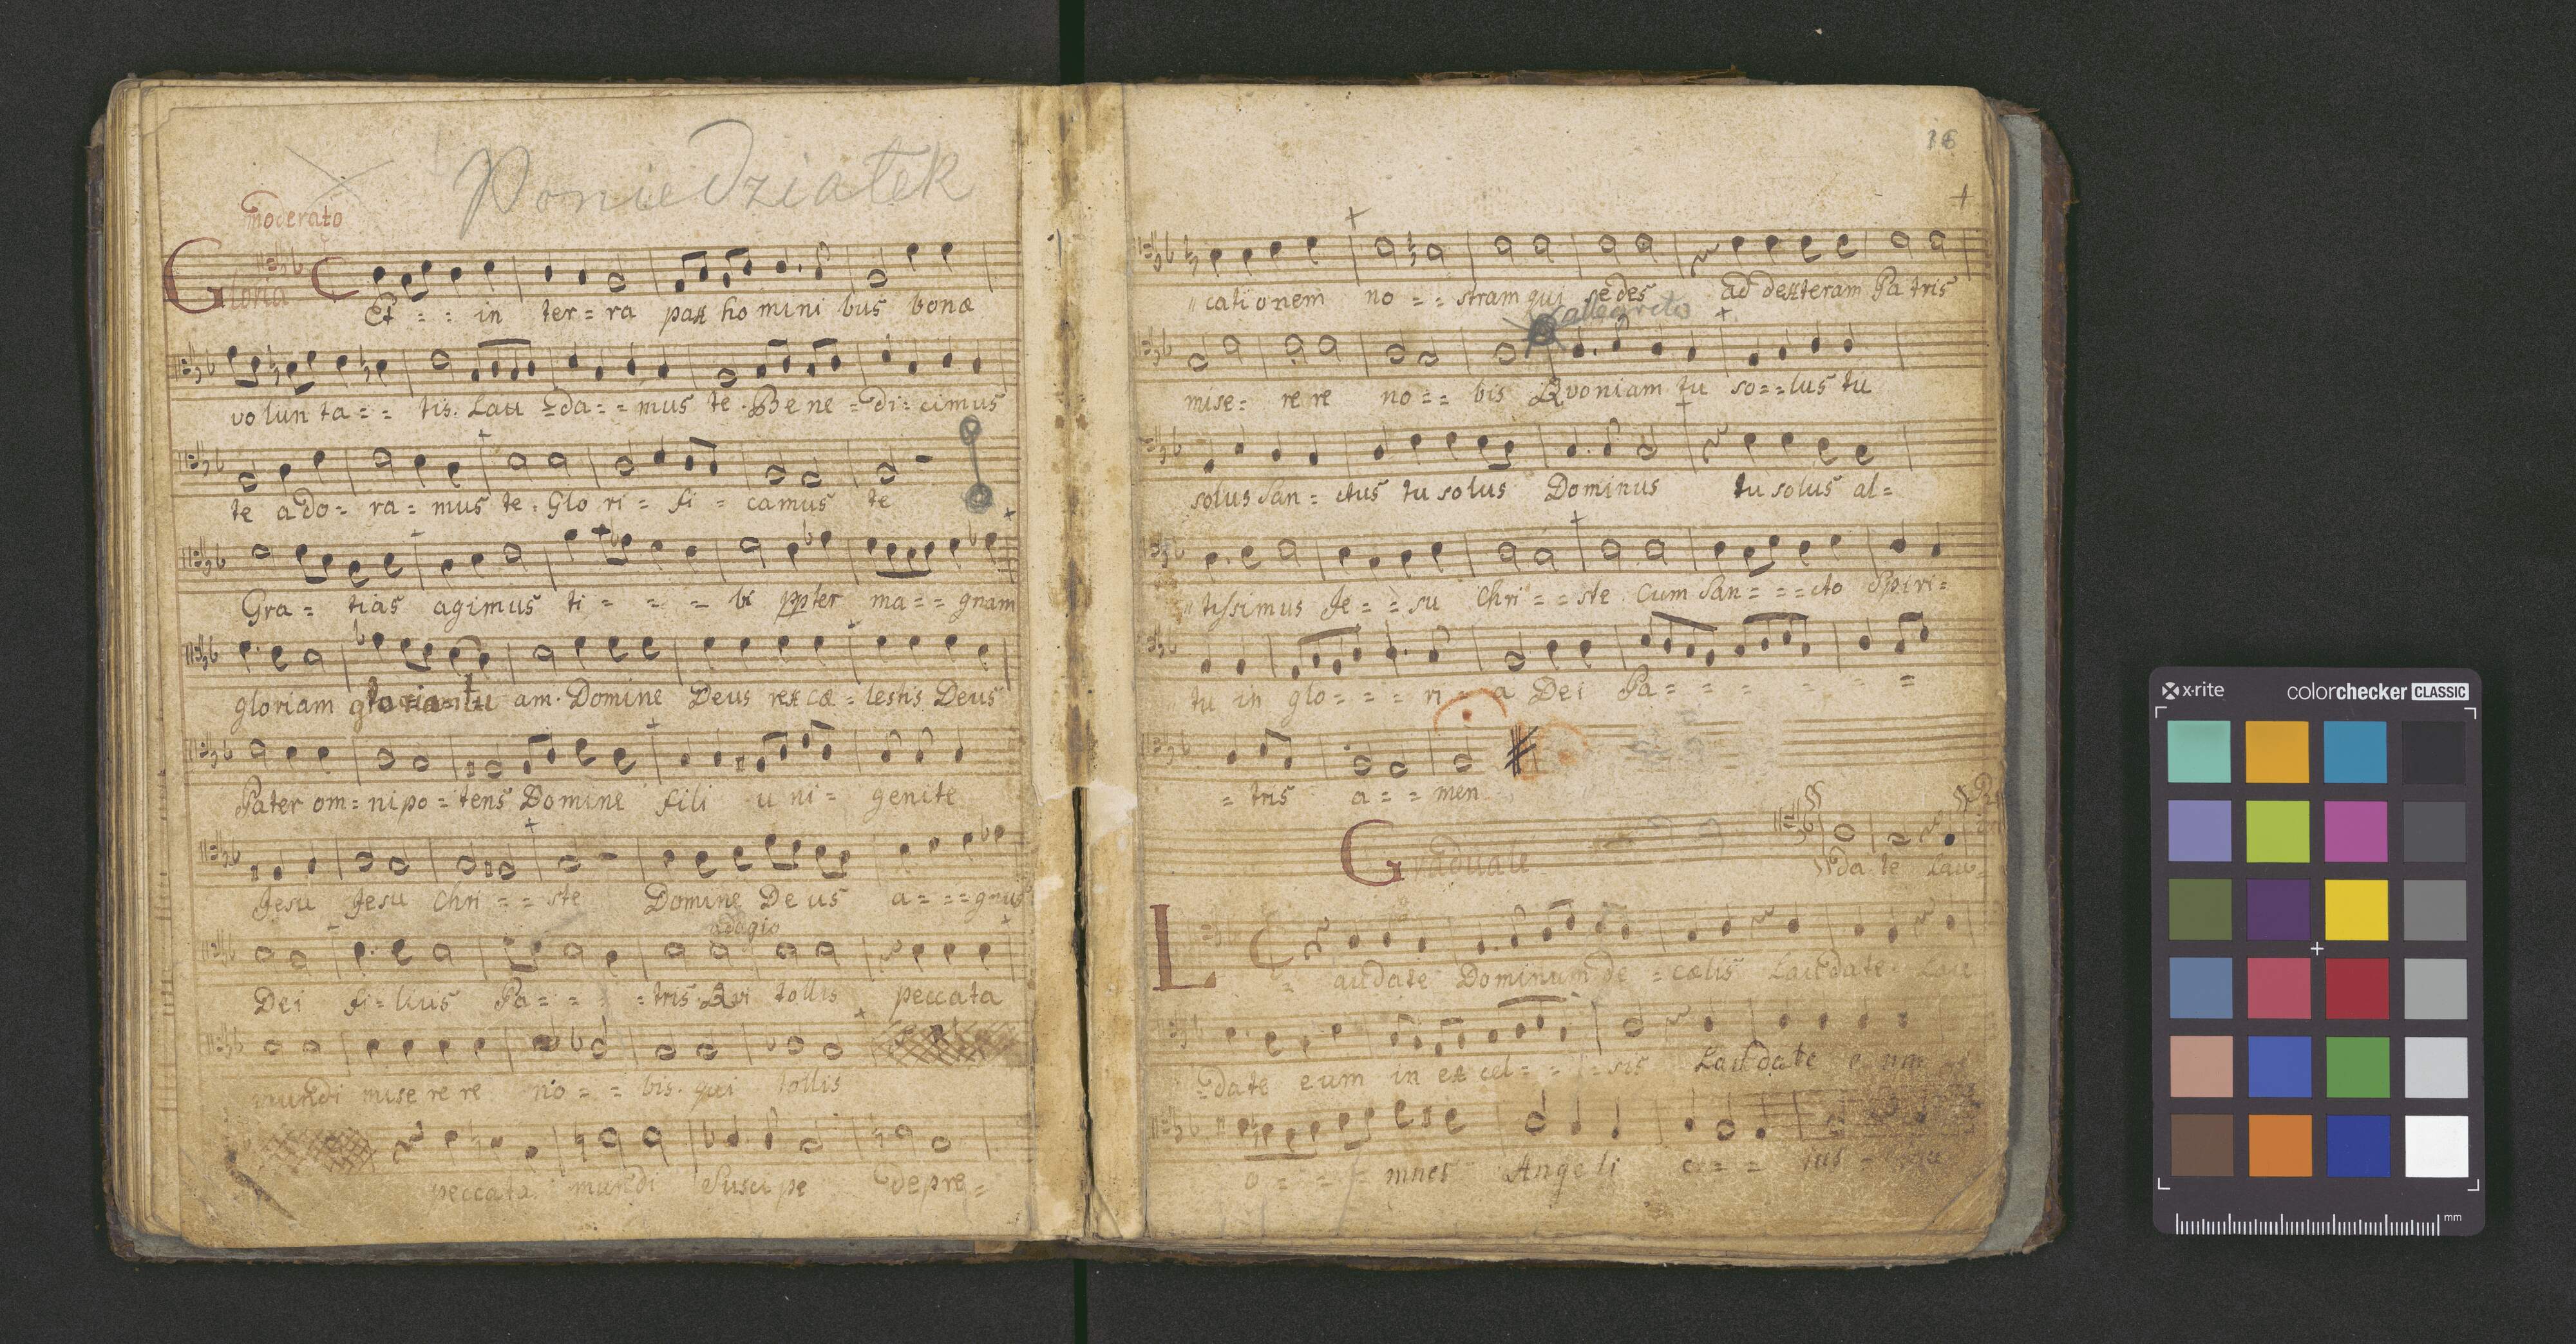 Poniedziałek
moderato
Gloria
Et = = in ter = ra pax ho mini bus bonæ
volun ta = = tis. Lau = da = = mus te. Be ne = di = cimus
te ado = ra = mus te. Glo ri = fi = camus te
Gra = tias agimus ti = = = bi ppter ma = = gnam
gloriam am. Domine Deus rex cæ = lestis Deus
Pater om = nipo = tens Domine fili u ni = genite
Jesu Jesu Chri = = ste Domine De us a = = = gnus
adagio
Dei fi = lius Pa = = = tris. Qvi tollis peccata
mundi mise re re no = = bis. qui tollis
peccata mundi Suscipe depre =
18
"cationem no = = stram qui sedes ad dexteram Patris
allegreto
mise = re re no = = bis Qvoniam tu so = = lus tu
solus San = ctus tu solus Dominus tu solus al =
"tissimus Je = = su Chri = = ste Cum San = = = cto Spiri =
tu in glo = = = ri = a Dei Pa = = = = = =
= tris a = = men
Graduale
da te Lau =
Laudate Dominum de = cælis Laudate Lau
= date eum in ex cel = = = sis Laudate e um
o = = = mnes Angeli e = = ius